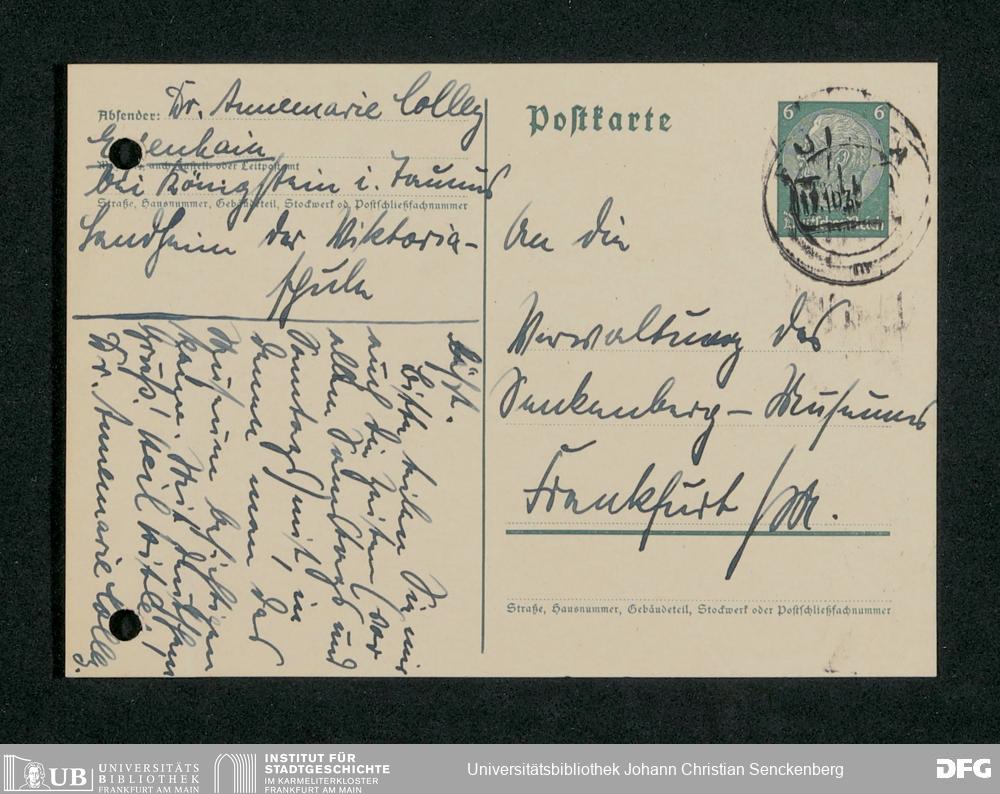 Absender: Dr. Annemarie Colley
Eppenhain
Wohnort, auch Zustell- oder Leitpostamt
bei Königstein i. Taunus
Straße, Hausnummer, Gebäudeteil, Stockwerk od. Postschließfachnummer
Landheim der Viktoria-
schule
Postkarte
6 6
Deutsches Reich
An die
Verwaltung des
Senkenberg-Museums
Frankfurt /M.
Straße, Hausnummer, Gebäudeteil, Stockwerk oder Postschließfachnummer
läßt.
Bitte teilen Sie mir
auch die Zeiten (vor
allem Samstags und
Sonntags) mit, in
denen man das
Museum besichtigen
kann. Mit deutschem
Gruß! Heil Hitler!
Dr. Annemarie Colley.
UB UNIVERSITÄTS
BIBLIOTHEK
FRANKFURT AM MAIN
INSTITUT FÜR
STADTGESCHICHTE
IM KARMELITERKLOSTER
FRANKFURT AM MAIN
Universitätsbibliothek Johann Christian Senckenberg
DFG